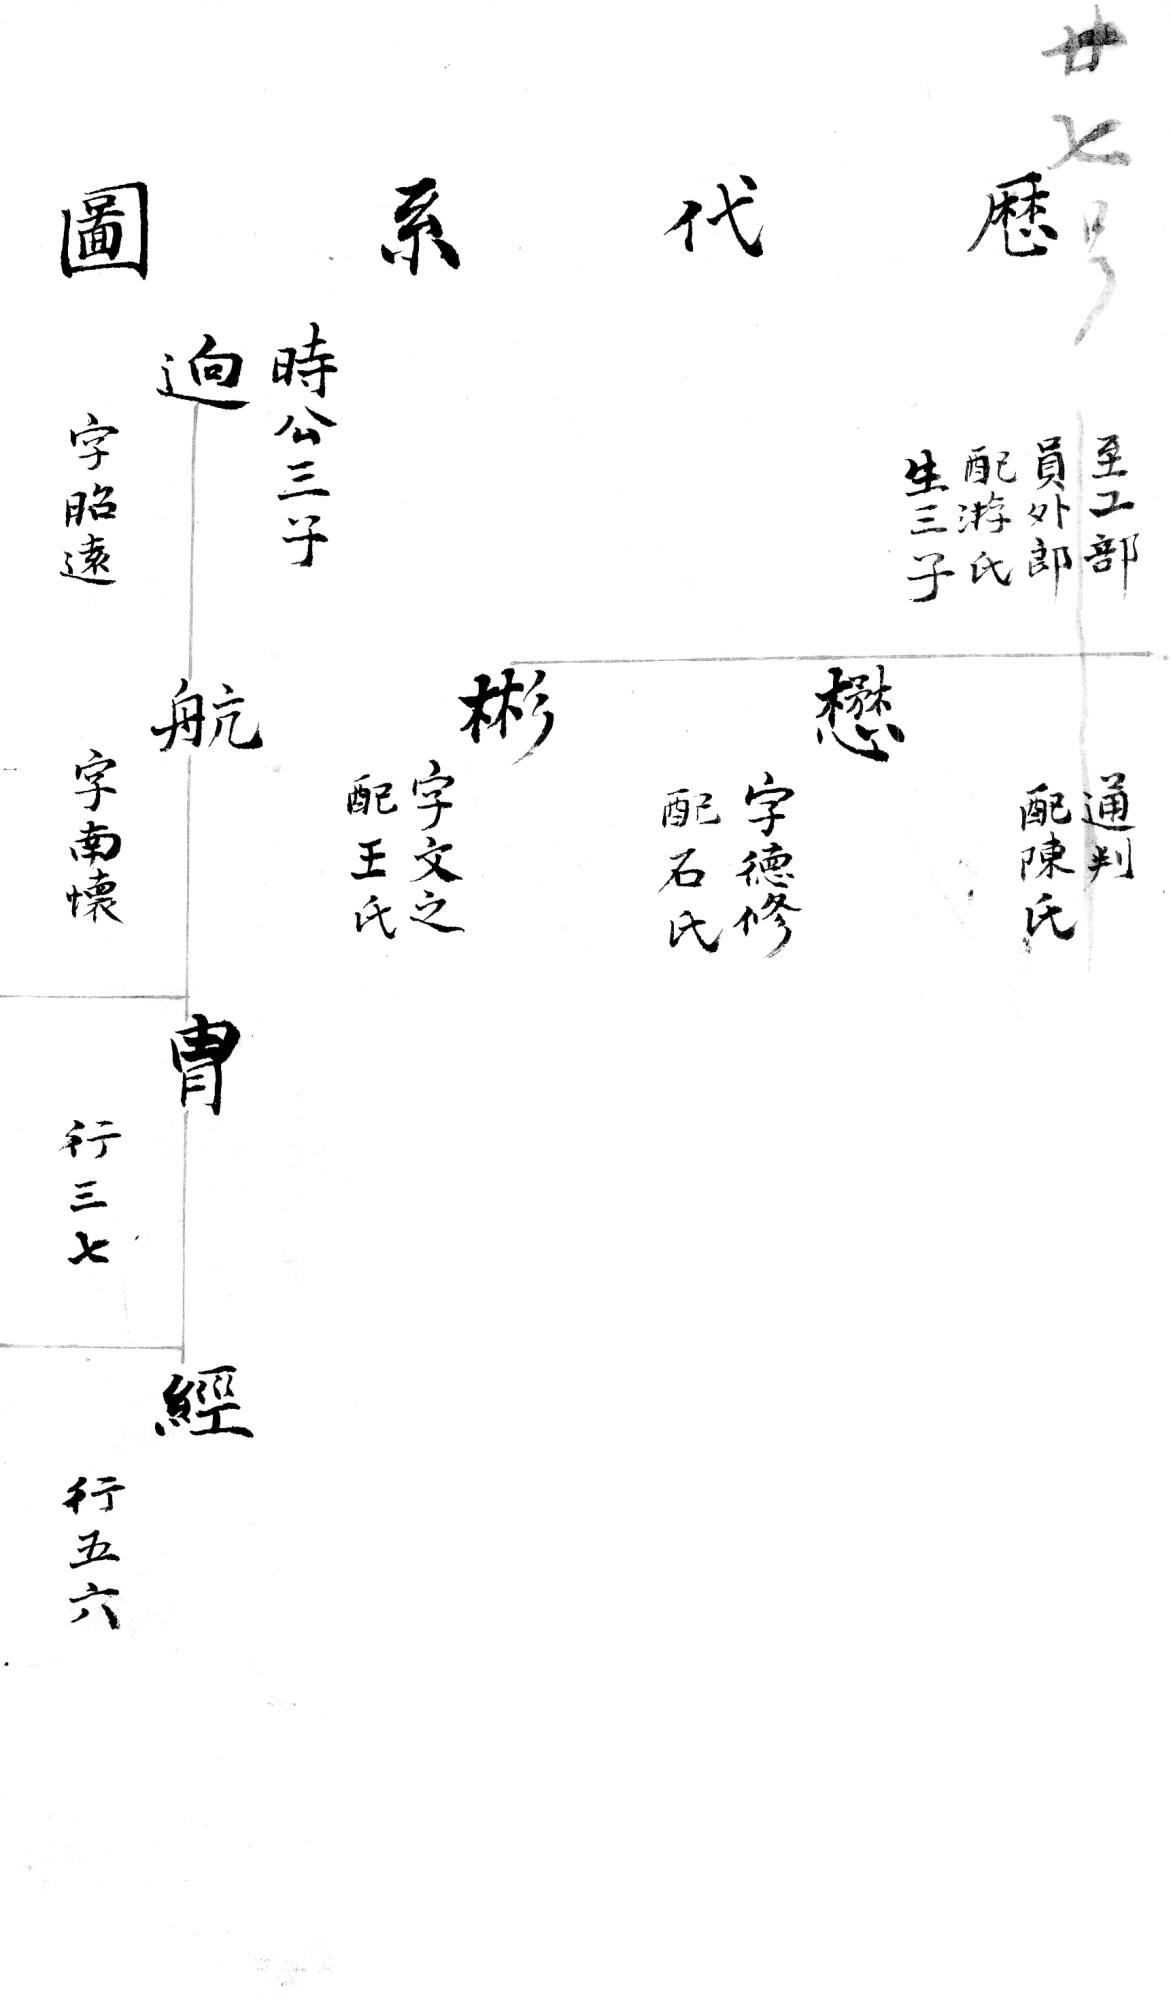 廿七号
歷代系圖
至工部
員外郎
配游氏
生三子
通判
配陳氏
懋
字德修
配石氏
彬
字文之
配王氏
時公三子
逈
字昭遠
航
字南懷
冑
行三七
經
行五六